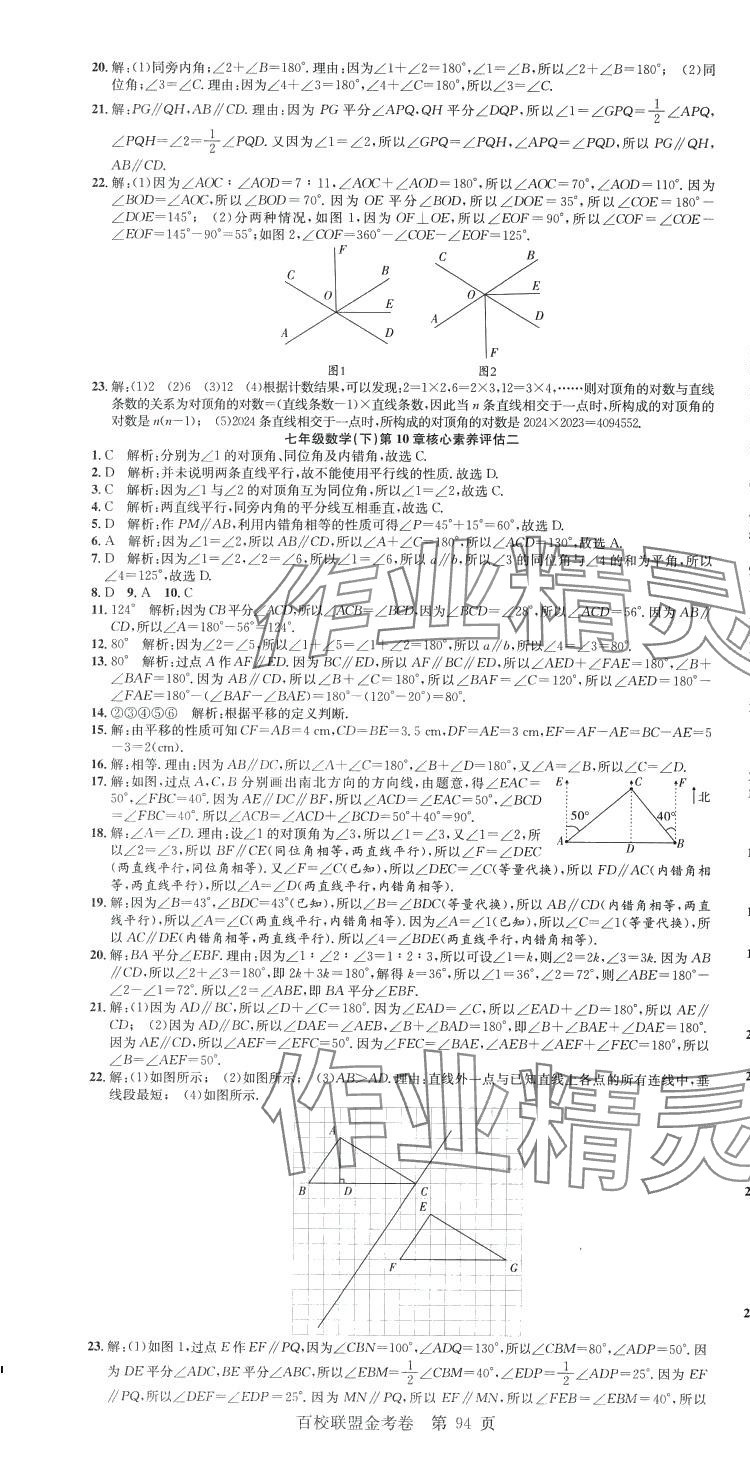 20. 解:(1)同旁内角;∠2+∠B=180°.理由:因为∠1+∠2=180°,∠1=∠B,所以∠2+∠B=180°; (2)同
位角;∠3=∠C.理由:因为∠4+∠3=180°,∠4+∠C=180°,所以∠3=∠C.
21. 解:PG∥QH,AB∥CD. 理由:因为 PG 平分∠APQ,QH 平分∠DQP,所以∠1=∠GPQ=1/2∠APQ,
∠PQH=∠2=1/2∠PQD. 又因为∠1=∠2,所以∠GPQ=∠PQH,∠APQ=∠PQD,所以 PG∥QH,
AB∥CD.
22. 解:(1)因为∠AOC∶∠AOD=7∶11,∠AOC+∠AOD=180°,所以∠AOC=70°,∠AOD=110°. 因为
∠BOD=∠AOC,所以∠BOD=70°. 因为 OE 平分∠BOD,所以∠DOE=35°,所以∠COE=180°-
∠DOE=145°; (2)分两种情况,如图 1,因为 OF⊥OE,所以∠EOF=90°,所以∠COF=∠COE-
∠EOF=145°-90°=55°;如图 2,∠COF=360°-∠COE-∠EOF=125°.
F
C
B
O
E
A
D
图1
C
B
O
E
A
D
F
图2
23. 解:(1)2 (2)6 (3)12 (4)根据计数结果,可以发现:2=1×2,6=2×3,12=3×4,……则对顶角的对数与直线
条数的关系为对顶角的对数=(直线条数-1)×直线条数,因此当 n 条直线相交于一点时,所构成的对顶角的
对数是 n(n-1); (5)2024 条直线相交于一点时,所构成的对顶角的对数是 2024×2023=4094552.
七年级数学(下)第 10 章核心素养评估二
1. C 解析:分别为∠1 的对顶角、同位角及内错角,故选 C.
2. D 解析:并未说明两条直线平行,故不能使用平行线的性质.故选 D.
3. C 解析:因为∠1 与∠2 的对顶角互为同位角,所以∠1=∠2,故选 C.
4. C 解析:两直线平行,同旁内角的平分线互相垂直,故选 C.
5. D 解析:作 PM∥AB,利用内错角相等的性质可得∠P=45°+15°=60°,故选 D.
6. A 解析:因为∠1=∠2,所以 AB∥CD,所以∠A+∠C=180°,所以∠ACD=130°,故选 A.
7. D 解析:因为∠1=∠2,∠2=∠6,所以∠1=∠6,所以 a∥b,所以∠3 的同位角与∠4 的和为平角,所以
∠4=125°,故选 D.
8. D 9. A 10. C
11. 124° 解析:因为 CB 平分∠ACD,所以∠ACB=∠BCD,因为∠BCD=∠28°,所以∠ACD=56°. 因为 AB∥
CD,所以∠A=180°-56°=124°.
12. 80° 解析:因为∠2=∠5,所以∠1+∠5=∠1+∠2=180°,所以 a∥b,所以∠4=∠3=80°.
13. 80° 解析:过点 A 作 AF∥ED. 因为 BC∥ED,所以 AF∥BC∥ED,所以∠AED+∠FAE=180°,∠B+
∠BAF=180°. 因为 AB∥CD,所以∠B+∠C=180°,所以∠BAF=∠C=120°,所以∠AED=180°-
∠FAE=180°-(∠BAF-∠BAE)=180°-(120°-20°)=80°.
14. ②③④⑤⑥ 解析:根据平移的定义判断.
15. 解:由平移的性质可知 CF=AB=4 cm,CD=BE=3.5 cm,DF=AE=3 cm,EF=AF-AE=BC-AE=5
-3=2(cm).
16. 解:相等. 理由:因为 AB∥DC,所以∠A+∠C=180°,∠B+∠D=180°,又∠A=∠B,所以∠C=∠D.
17. 解:如图,过点 A,C,B 分别画出南北方向的方向线,由题意,得∠EAC=
50°,∠FBC=40°. 因为 AE∥DC∥BF,所以∠ACD=∠EAC=50°,∠BCD
=∠FBC=40°. 所以∠ACB=∠ACD+∠BCD=50°+40°=90°.
E
C
F
北
50°
40°
A
D
B
18. 解:∠A=∠D. 理由:设∠1 的对顶角为∠3,所以∠1=∠3,又∠1=∠2,所
以∠2=∠3,所以 BF∥CE(同位角相等,两直线平行),所以∠F=∠DEC
(两直线平行,同位角相等). 又∠F=∠C(已知),所以∠DEC=∠C(等量代换),所以 FD∥AC(内错角相
等,两直线平行),所以∠A=∠D(两直线平行,内错角相等).
19. 解:因为∠B=43°,∠BDC=43°(已知),所以∠B=∠BDC(等量代换),所以 AB∥CD(内错角相等,两直
线平行),所以∠A=∠C(两直线平行,内错角相等). 因为∠A=∠1(已知),所以∠C=∠1(等量代换),所
以 AC∥DE(内错角相等,两直线平行). 所以∠4=∠BDE(两直线平行,内错角相等).
20. 解:BA 平分∠EBF. 理由:因为∠1∶∠2∶∠3=1∶2∶3,所以可设∠1=k,则∠2=2k,∠3=3k. 因为 AB
∥CD,所以∠2+∠3=180°,即 2k+3k=180°,解得 k=36°,所以∠1=36°,∠2=72°,则∠ABE=180°-
∠2-∠1=72°. 所以∠2=∠ABE,即 BA 平分∠EBF.
21. 解:(1)因为 AD∥BC,所以∠D+∠C=180°. 因为∠EAD=∠C,所以∠EAD+∠D=180°,所以 AE∥
CD; (2)因为 AD∥BC,所以∠DAE=∠AEB,∠B+∠BAD=180°,即∠B+∠BAE+∠DAE=180°.
因为 AE∥CD,所以∠AEF=∠EFC=50°. 因为∠FEC=∠BAE,∠AEB+∠AEF+∠FEC=180°,所以
∠B=∠AEF=50°.
22. 解:(1)如图所示; (2)如图所示; (3)AB>AD. 理由:直线外一点与已知直线上各点的所有连线中,垂
线段最短; (4)如图所示.
A
B
D
C
E
F
G
23. 解:(1)如图 1,过点 E 作 EF∥PQ,因为∠CBN=100°,∠ADQ=130°,所以∠CBM=80°,∠ADP=50°. 因
为 DE 平分∠ADC,BE 平分∠ABC,所以∠EBM=1/2∠CBM=40°,∠EDP=1/2∠ADP=25°. 因为 EF
∥PQ,所以∠DEF=∠EDP=25°. 因为 MN∥PQ,所以 EF∥MN,所以∠FEB=∠EBM=40°,所以
百校联盟金考卷 第 94 页
作业精灵
作业精灵